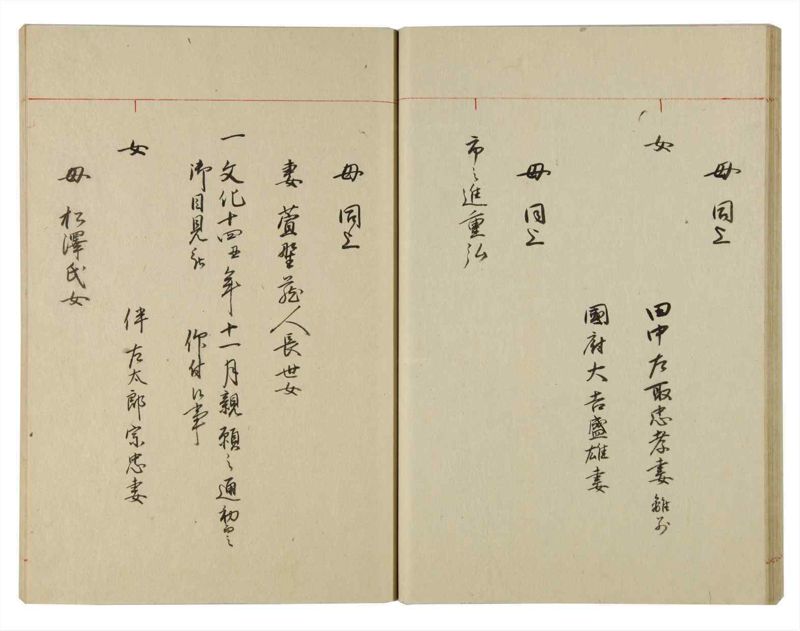 母同上
女
田中左取忠孝妻 離別
國府大吉盛雄妻
母同上
市之進重弘
母同上
妻 萱野 人長世女
一文化十四丑年十一月親願之通初而
御目見被 仰付候事
女
伴左太郎宗忠妻
母 松澤氏女